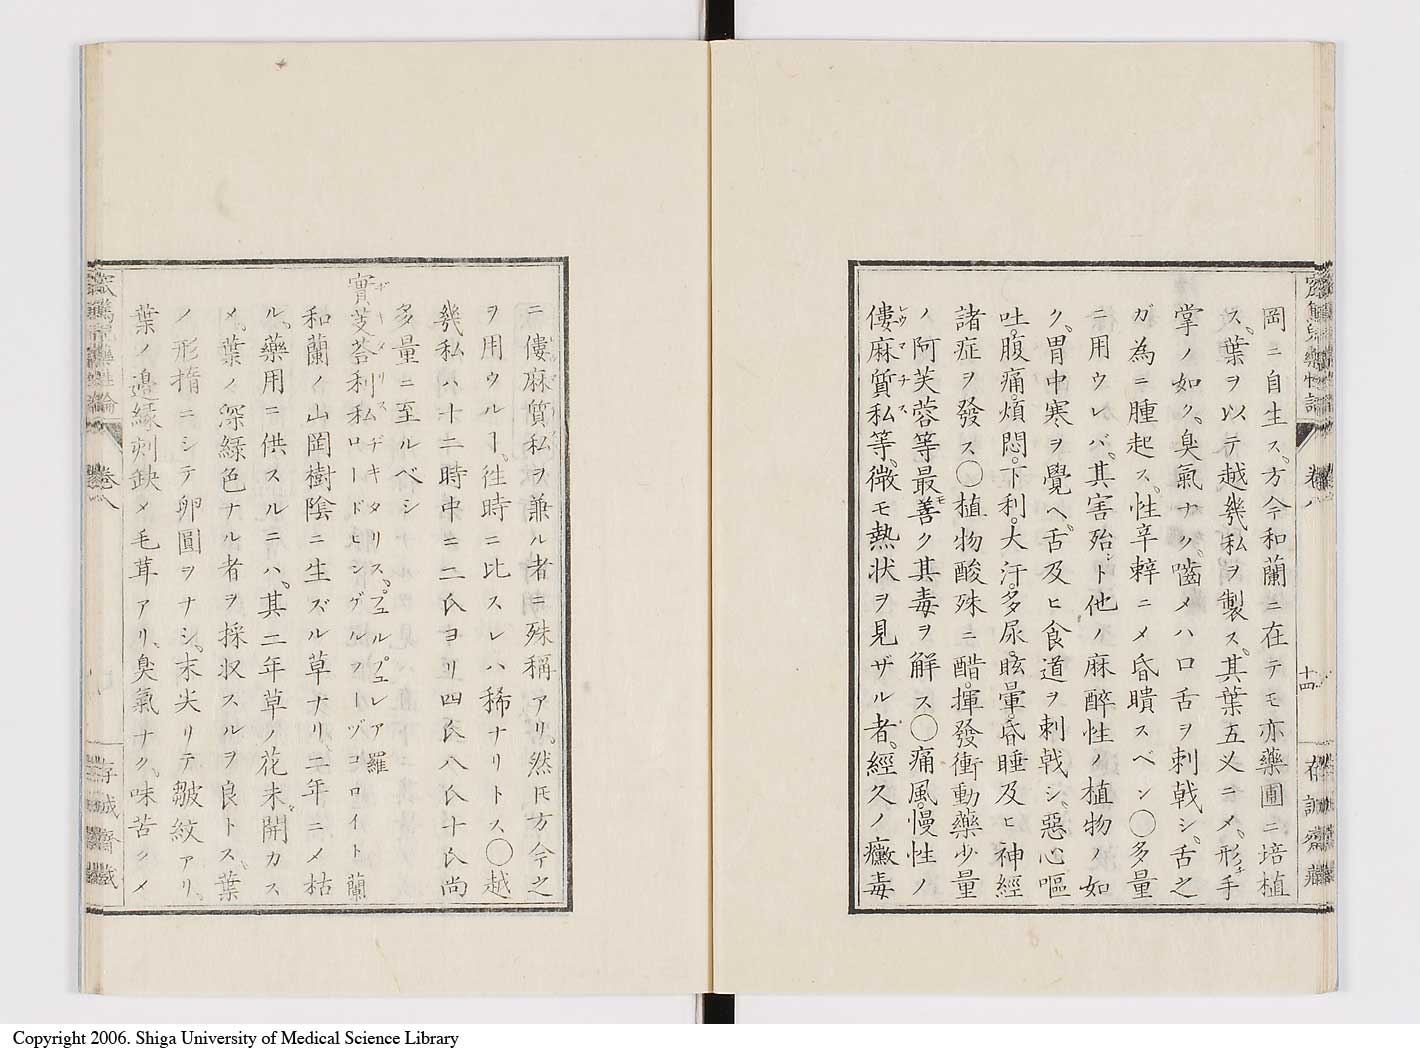 岡ニ自生ス。方今和蘭ニ在テモ亦藥圃ニ培植
ス。葉ヲ以テ越幾私ヲ製ス。其葉五乂ニ〆。形チ手
掌ノ如ク。臭氣ナク。嚙メハ口舌ヲ刺戟シ。舌之
ガ為ニ腫起ス。性辛辣ニ〆昏瞶スベシ〇多量
ニ用ウレバ。其害殆シト他ノ麻醉性ノ植物ノ如
ク。胃中寒ヲ覺ヘ。舌及ヒ食道ヲ刺戟シ。惡心嘔
吐。腹痛。煩悶。下利。大汗。多尿。眩暈昏睡及ヒ神經
諸症ヲ發ス〇植物酸殊ニ醋。揮發衝動藥少量
ノ阿芙蓉等最モ善ク其毒ヲ解ス〇痛風。慢性ノ
僂麻質私等。微モ熱状ヲ見ザル者。經久ノ黴毒
レウマチス
十四
卷八
ニ僂麻質私ヲ兼ル者ニ殊稱アリ。然𪜈方今之
ヲ用ウルヿ。徃時ニ比スレハ稀ナリトス〇越
幾私ハ十二時中ニ二氏ヨリ四氏八氏十氏尚
多量ニ至ルベシ
實芰荅利私 ヂキタリス。ピュルピュレア羅 ロードヒンゲルフーヅコロイト蘭
ヂキタリス
和蘭ノ山岡樹陰ニ生ズル草ナリ。二年ニ〆枯
ル。藥用ニ供スルニハ。其二年草ノ花未ダ開カス
〆。葉ノ深緑色ナル者ヲ採収スルヲ良トス。葉
ノ形楕ニシテ卵圓ヲナシ。末尖リテ皺紋アリ。
葉ノ邊縁刻鈌〆毛茸アリ。臭氣ナク。味苦ク〆
卷八